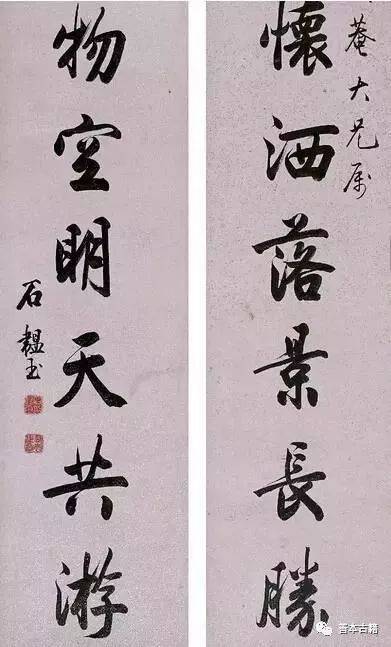 菴大兄属
懷洒落景長勝
物空明天共游
石韞玉
善本古籍